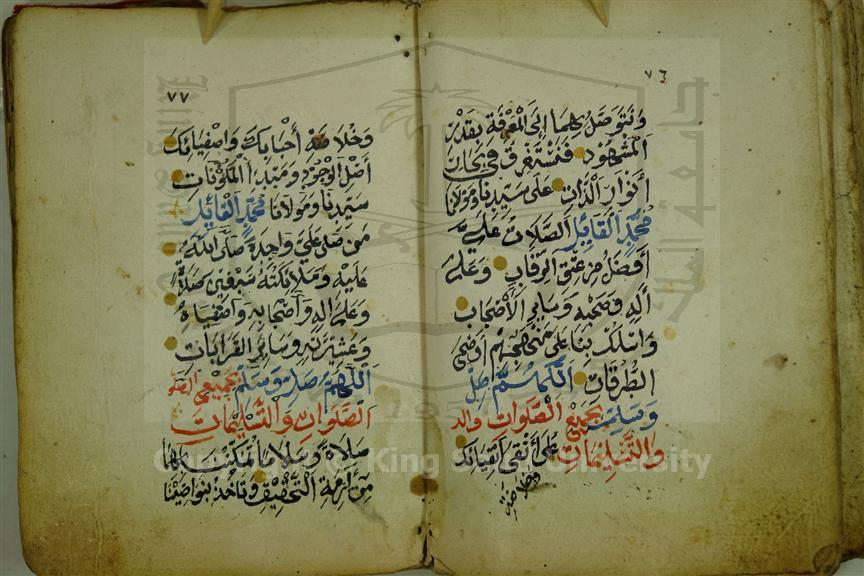 ٧٦
ونتوصل بهما إلى المعرفة بقدر
المشهود فنستغرق في بحار
أنوار الذات على سيدنا ومولانا
محمد القائل الصلاة علي
أفضل من عتق الرقاب وعلى
آله وصحبه وسائر الأصحاب
واسلك بنا على منهجهم أوضح
الطرقات اللهم صل
وسلم بجميع الصلوات
والتسليمات على أتقى أتقيائك
وخلاصة
٧٧
وخلاصة أحبابك وأصفيائك
أصل الوجود ومبدأ المكونات
سيدنا ومولانا محمد القائل
من صلى علي واحدة صلى الله
عليه وملائكته سبعين صلاة
وعلى آله وأصحابه وأصفياه
وعشيرته وسائر القرابات
اللهم صل وسلم بجميع
الصلوات والتسليمات
صلاة وسلاما
من أزمة التخفيف وتأخذ بنواصينا
Copyright © King Saud University
جامعة الملك
1957